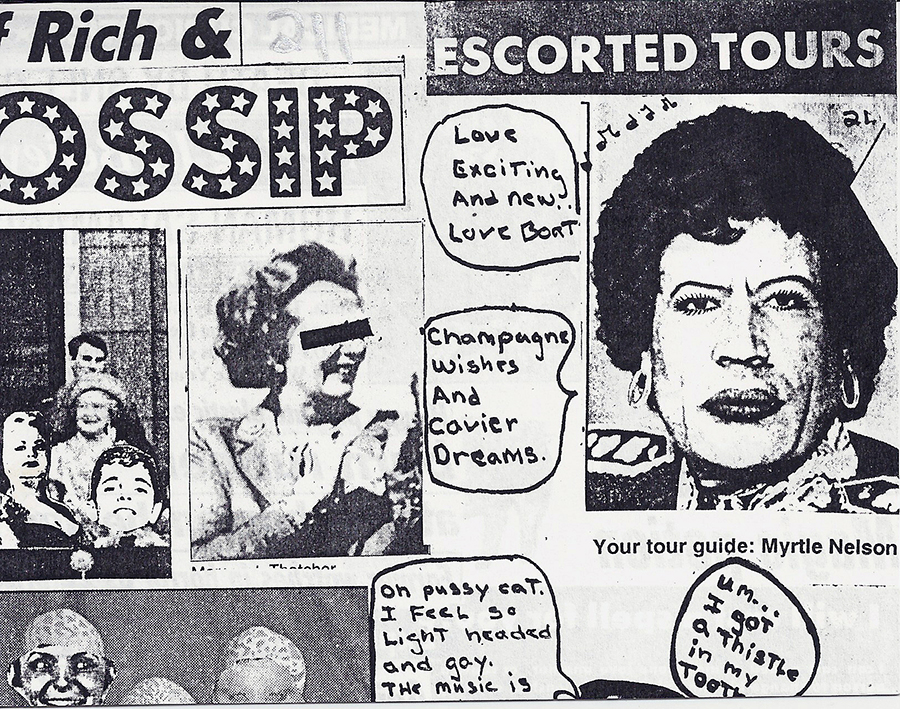 f Rich &
OSSIP
ESCORTED TOURS
Love
Exciting
And new..
Love Boat
21
Champagne
wishes
And
Cavier
Dreams.
Thatcher
Your tour guide: Myrtle Nelson
oh pussy cat.
I Feel so
Light headed
and gay.
The music is
um...
I got
a Thisthe
in my
Tooth